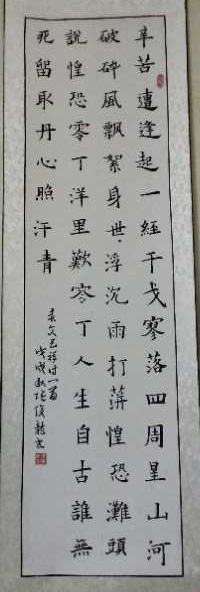 辛苦遭逢起一經干戈寥落四周星山河
破碎風飄絮身世浮沉雨打萍惶恐灘頭
說惶恐零丁洋里歎零丁人生自古誰無
死留取丹心照汗青
录文天祥诗一首
戊戌秋